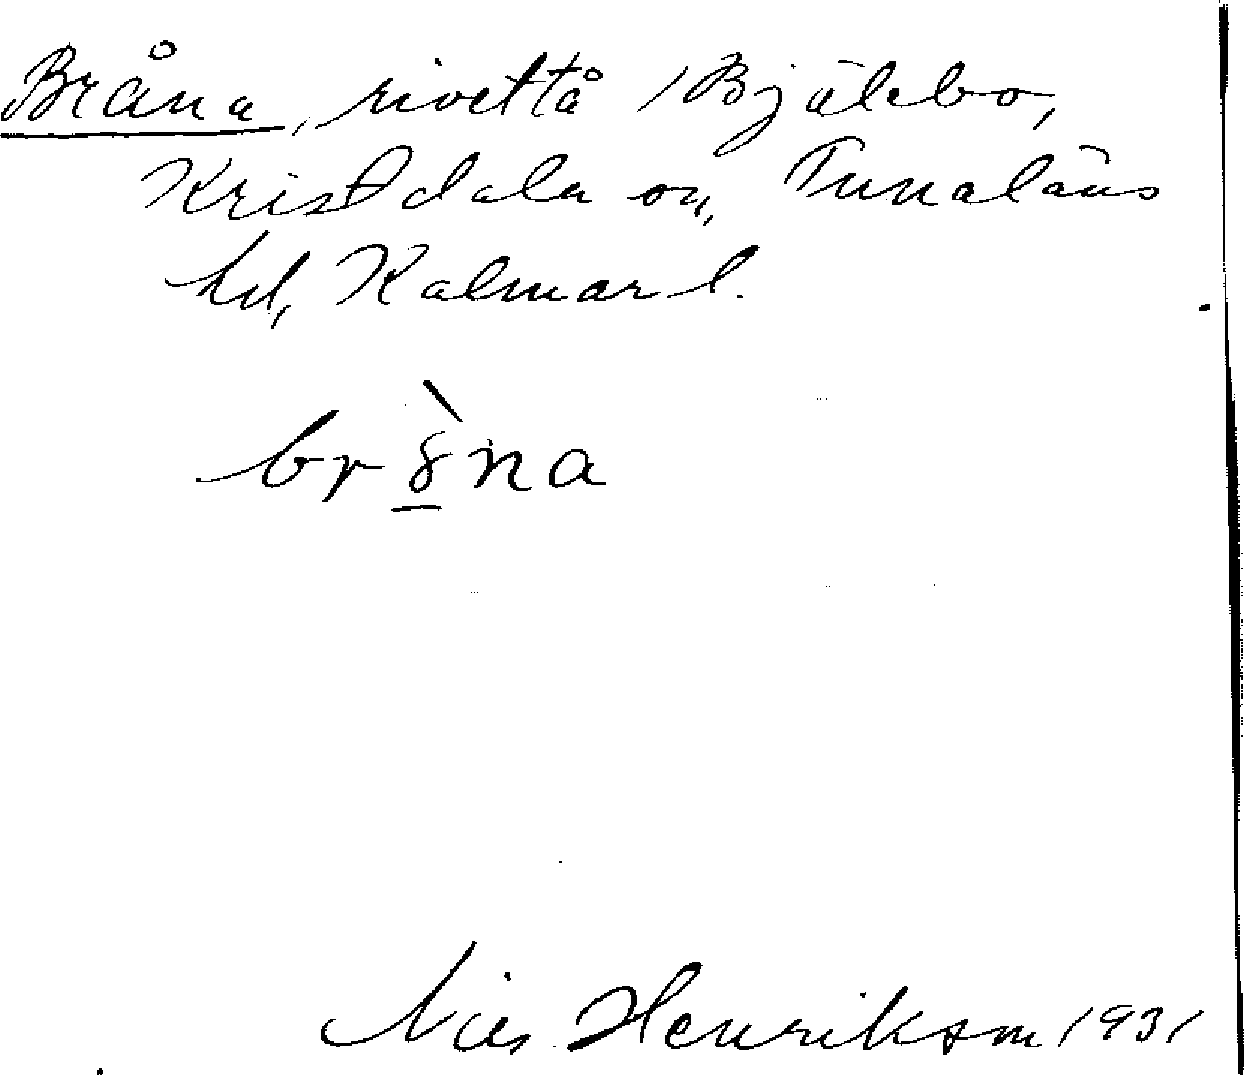 Bråna, rivettå i Bjälebo,
Kristdala sn, Tunaläns
hd, Kalmar l.
br8̲̀na
Nils Henrikson 1931